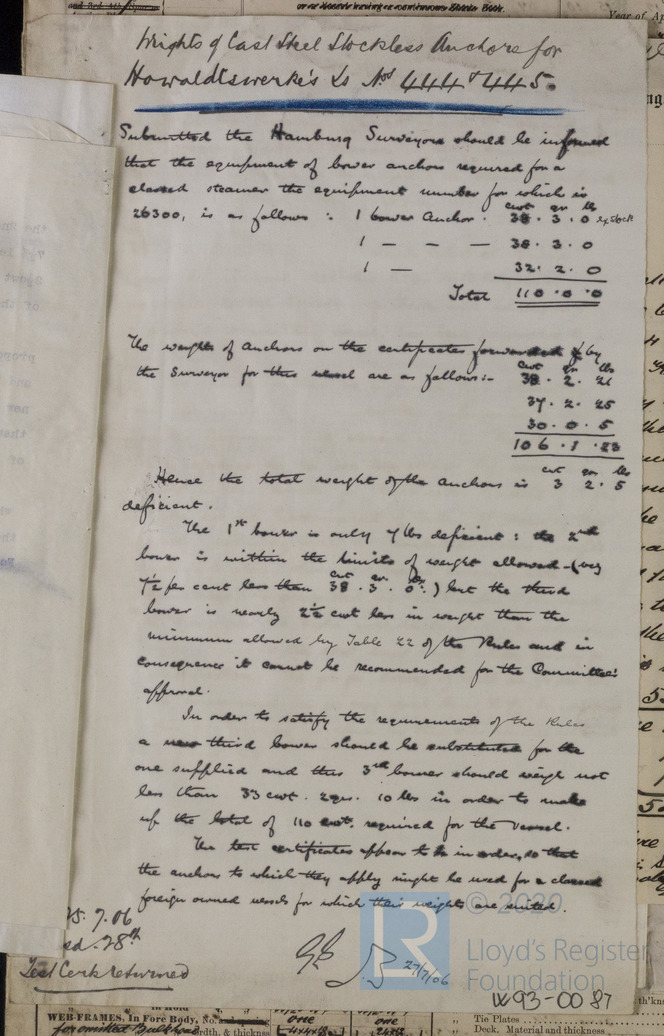 Weights of Cast Steel Stockless Anchors for
Howaldtswerke's Ls Nos 444 & 445.
Submitted the Hamburg Surveyors should be informed
that the equipment of bower anchors required for a
classed steamer the equipment number for which is
26300, is as follows : 1 bower Anchor. cwt qr lb 38 . 3 . 0 ex stock
1 — — — 38 . 3 . 0
1 — 32 . 2 . 0
Total 110 . 0 . 0
The weights of anchors on the certificates forwarded by
the Surveyor for this vessel are as follows:- cwt qr lbs 38 . 2 . 21
37 . 2 . 25
30 . 0 . 5
106 . 1 . 23
Hence the total weight of the anchors is cwt qr lbs 3 2 . 5
deficient.
The 1st bower is only 7 lbs deficient : the 2nd
bower is within the limits of weight allowed - (viz
7½ per cent less than cwt qr lb 38 . 3 . 0 : ) but the third
bower is nearly 2½ cwt less in weight than the
minimum allowed by Table 22 of the Rules and in
consequence it cannot be recommended for the Committee's
approval.
In order to satisfy the requirements of the Rules
a new third bower should be substituted for the
one supplied and this 3rd bower should weigh not
less than 33 cwt. 2 qrs. 10 lbs in order to make
up the total of 110 cwt. required for the vessel.
The test certificates appear to be in order, so that
the anchors to which they apply might be used for a classed
foreign owned vessel for which their weights are suited.
25.7.06
28th
Test Certs returned
27/7/06
W93-0087
© 2020
Lloyd's Register
Foundation
WEB-FRAMES, In Fore Body, No.
one
one
Tie Plates
Deck. Material and thickness.
Year of